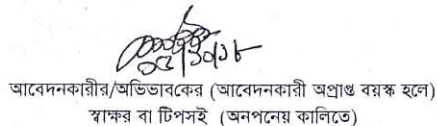 ০৫/১০/১৮
আবেদনকারীর/অভিভাবকের (আবেদনকারী অপ্রাপ্ত বয়স্ক হলে)
স্বাক্ষর বা টিপসই (অনপনেয় কালিতে)